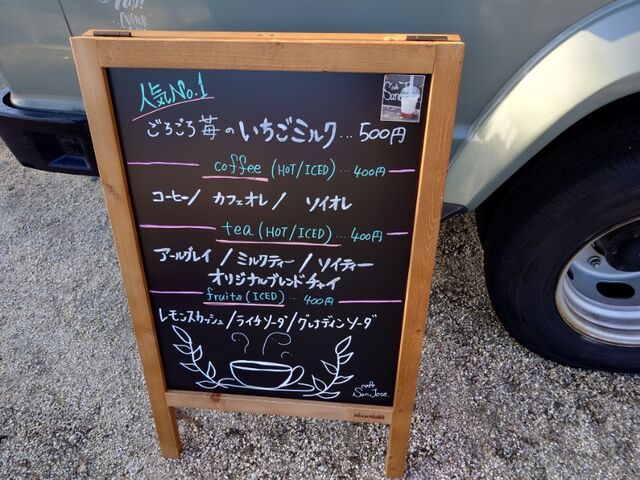 人気No.1
ごろごろ苺のいちごミルク…500円
coffee (HOT/ICED)…400円
コーヒー/ カフェオレ/ ソイオレ
tea (HOT/ICED)…400円
アールグレイ/ミルクティー/ソイティー
オリジナルブレンドチャイ
fruits (ICED)…400円
レモンスカッシュ/ライチソーダ/グレナディンソーダ
cafe
San Jose